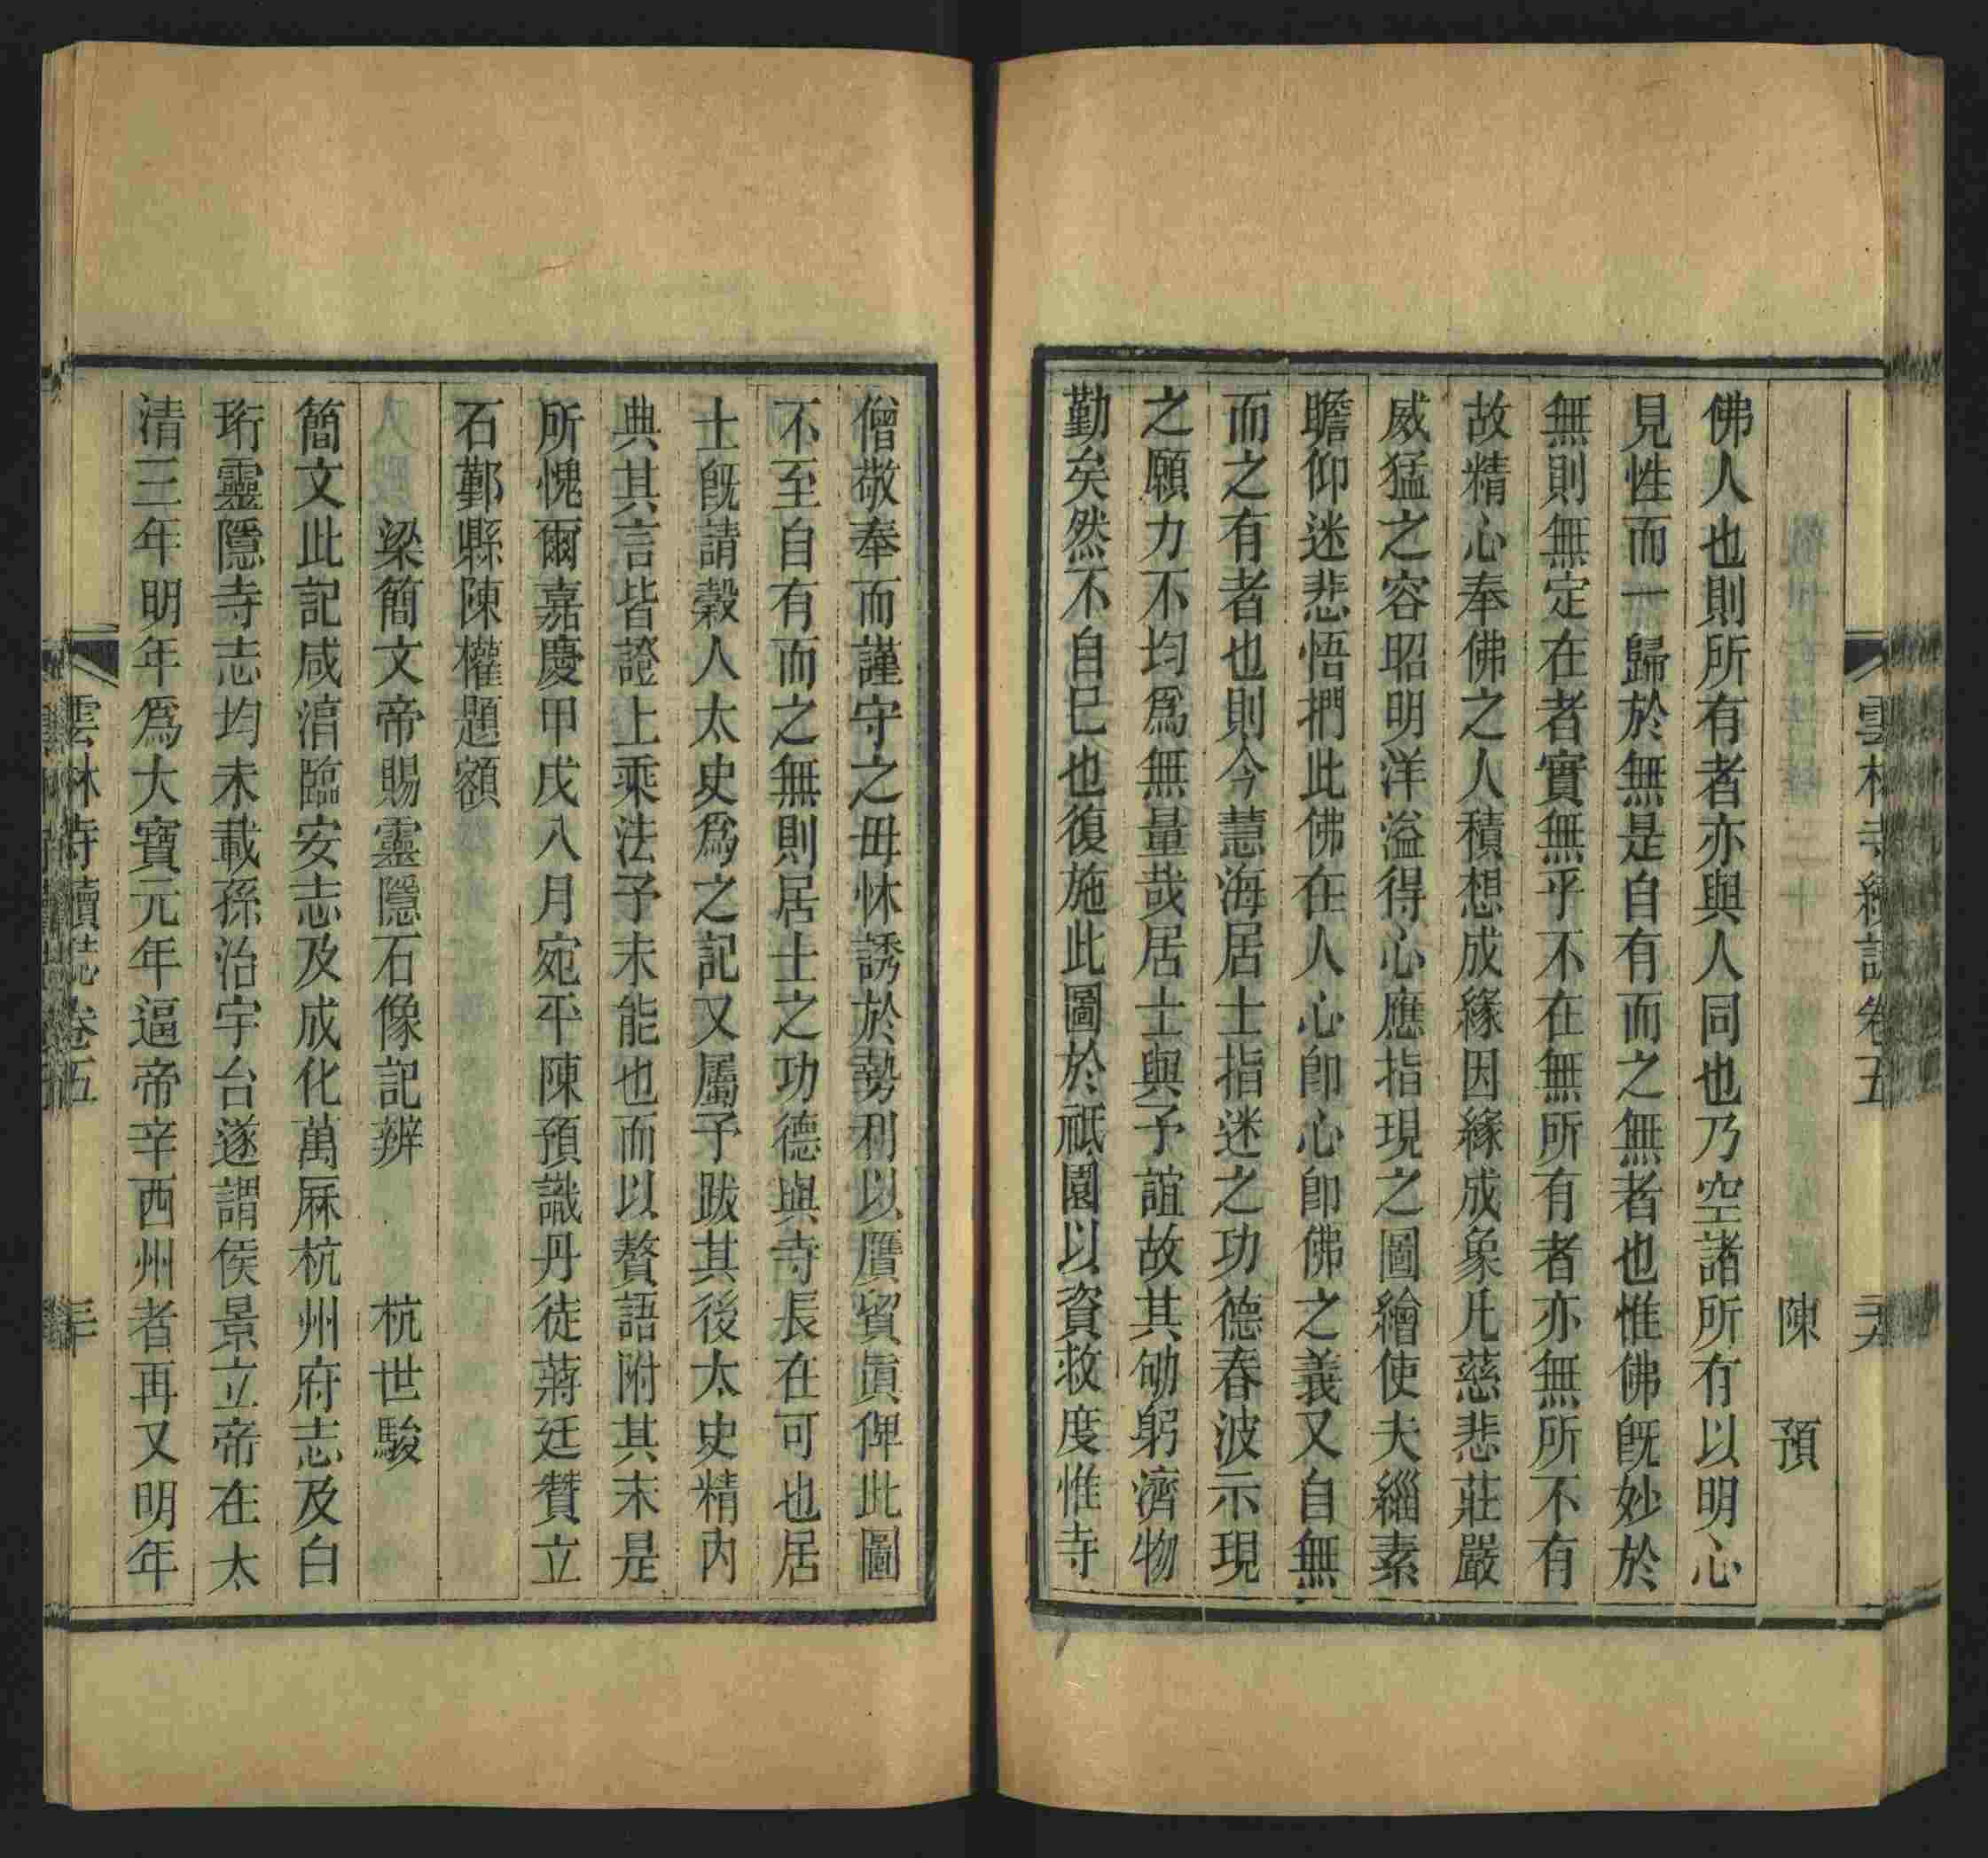 雲林寺續誌卷五
陳預
佛人也則所有者亦與人同也乃空諸所有以明心
見性而一歸於無是自有而之無者也惟佛旣妙於
無則無定在者實無乎不在無所有者亦無所不有
故精心奉佛之人積想成緣因緣成象凡慈悲莊嚴
威猛之容昭明洋溢得心應指現之圖繪使夫緇素
瞻仰迷悲悟捫此佛在人心卽心卽佛之義又自無
而之有者也則今慧海居士指迷之功德春波示現
之願力不均爲無量哉居士與予誼故其劬躬濟物
勤矣然不自巳也復施此圖於祇園以資救度惟寺
僧敬奉而謹守之毋怵誘於勢利以贋貿眞俾此圖
不至自有而之無則居士之功德與寺長在可也居
士旣請穀人太史爲之記又屬予跋其後太史精內
典其言皆證上乘法予未能也而以贅語附其末是
所愧爾嘉慶甲戌八月宛平陳預識丹徒蔣廷贊立
石鄞縣陳權題額
梁簡文帝賜靈隱石像記辨 杭世駿
簡文此記咸淳臨安志及成化萬厤杭州府志及白
珩靈隱寺志均未載孫治宇台遂謂侯景立帝在太
清三年明年爲大寶元年逼帝幸西州者再又明年
雲林寺續誌卷五